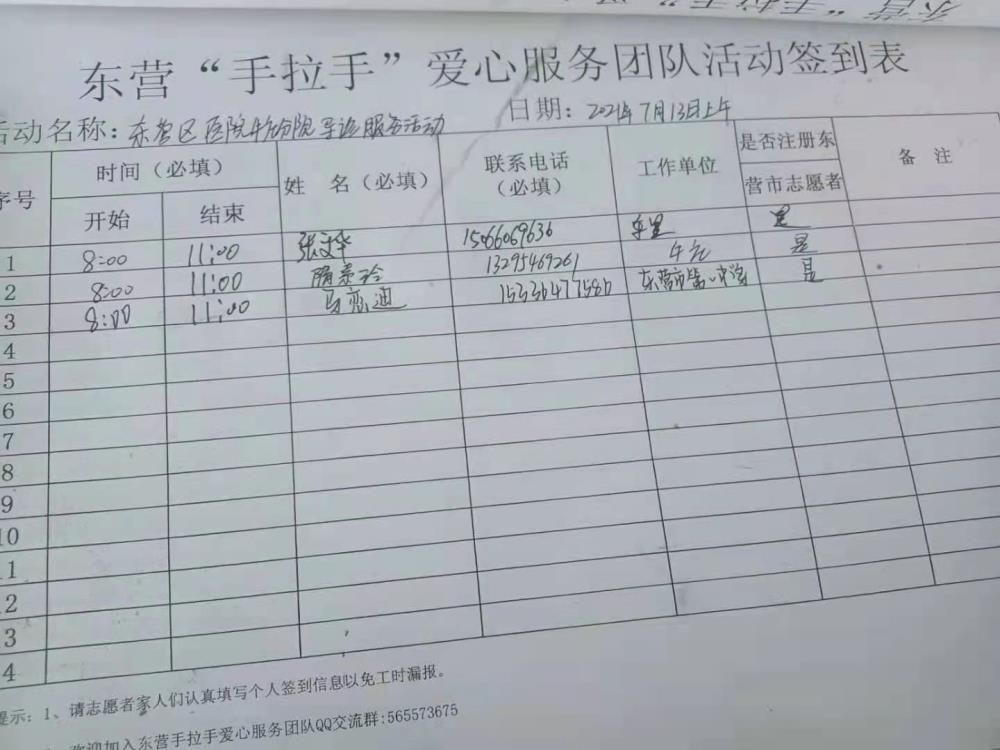 东营“手拉手”爱心服务团队活动签到表
活动名称：东营区医院 分院导诊服务活动 日期：2021年7月13日上午
序号 时间（必填） 姓 名（必填） 联系电话（必填） 工作单位 是否注册东营市志愿者 备 注
开始 结束
1 8:00 11:00 张文华 15066069636 是
2 8:00 11:00 13295469261 是
3 8:00 11:00 马 迪 15336477586 东营市第一中学 是
4
5
6
7
8
9
10
11
12
13
14
提示：1、请志愿者家人们认真填写个人签到信息以免工时漏报。
欢迎加入东营手拉手爱心服务团队QQ交流群:565573675